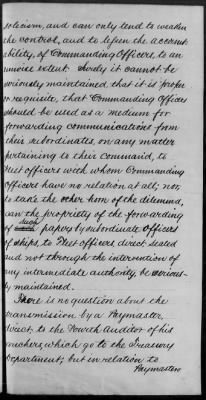 solecism, and can only tend to weaken
the control, and to lessen the account
ability, of Commanding Officers, to an
unwise extent. Surely it cannot be
seriously maintained, that it is proper
or requisite, that Commanding Officers
should be used as a medium for
forwarding communications from
their subordinates, on any matter
pertaining to their command, to
Fleet officers with whom Commanding
Officers have no relation at all; nor,
to take the other horn of the dilemma,
can the propriety of the forwarding
of such papers by subordinate Officers
of ships, to Fleet officers direct sealed
and not through the intervention of
any intermediate authority, be serious-
ly maintained.
There is no question about the
transmission by a Paymaster,
direct, to the Fourth Auditor of his
vouchers, which go to the Treasury
Department; but in relation to
Paymasters